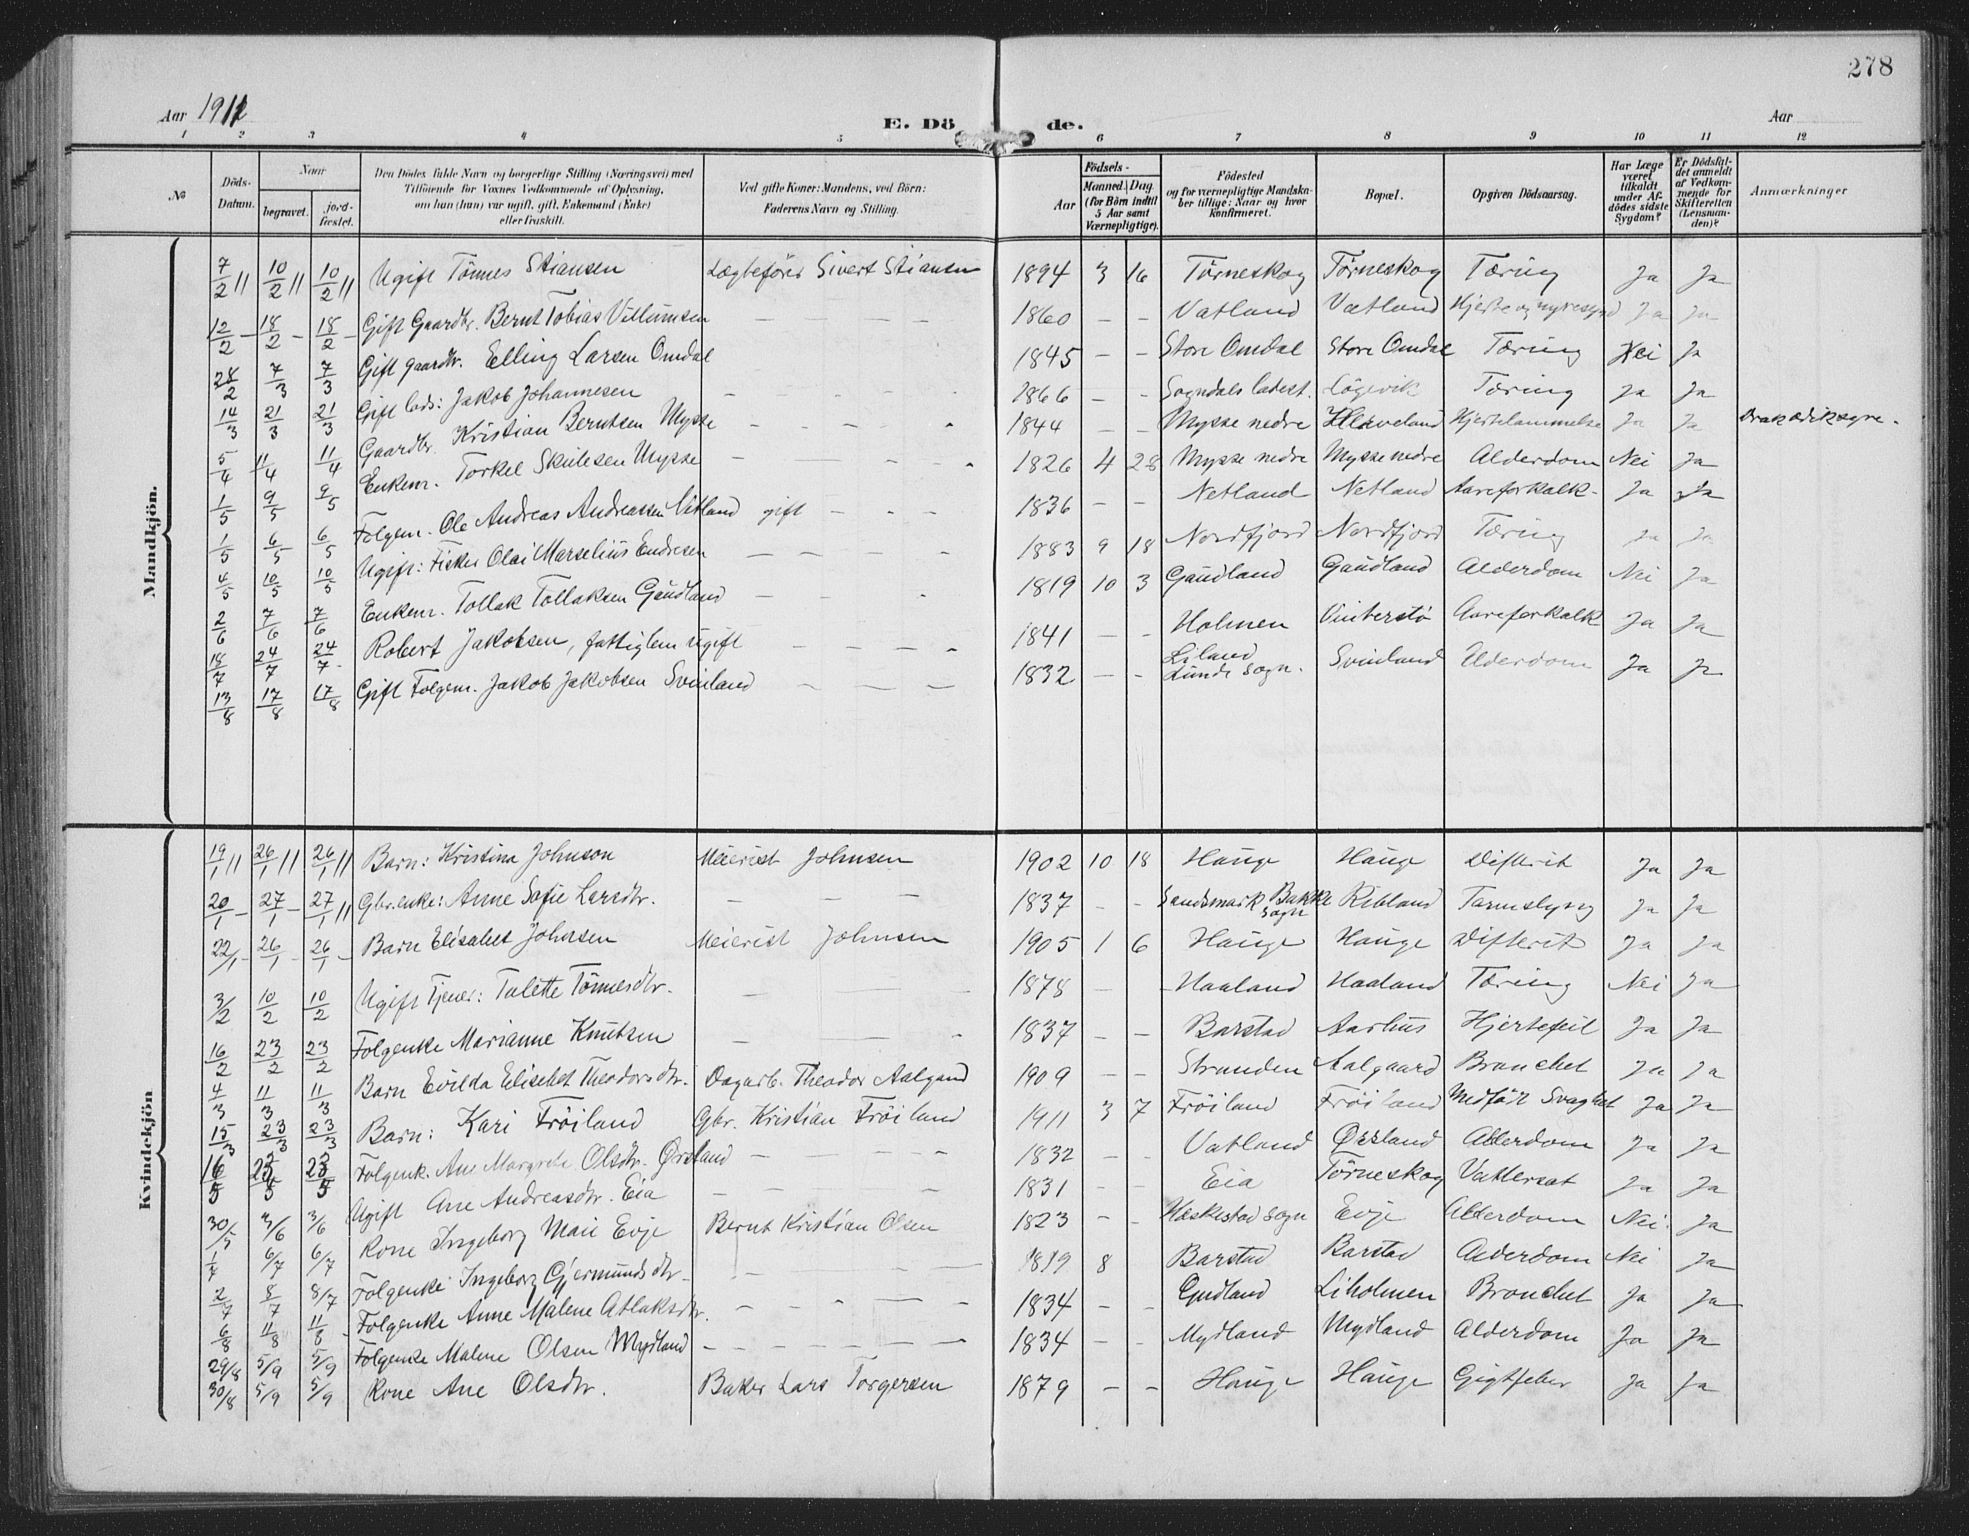 278
Aar 1911
E. Döde.
Aar
1 2 3 4 5 6 7 8 9 10 11 12
№
Döds-Datum.
Naar
begravet.
jord-fæstet.
Den Dödes fulde Navn og borgerlige Stilling (Næringsvei) med Tilföiende for Voxnes Vedkommende af Oplysning, om han (hun) var ugift, gift, Enkemand (Enke) eller fraskilt.
Ved gifte Koner: Mandens, ved Börn: Faderens Navn og Stilling.
Födsels-
Aar
Maaned. Dag (for Börn indtil 5 Aar samt Værnepligtige).
Födested og for værnepligtige Mandskaber tillige: Naar og hvor konfirmeret.
Bopæl.
Opgiven Dödsaarsag.
Har Læge været tilkaldt under Afdödes sidste Sygdom?
Er Dödsfaldet anmeldt af Vedkommende for Skifteretten (Lensmanden)?
Anmærkninger
Mandkjön.
7/2 11 10/2 11 10/2 11 Ugift Tönnes Stiansen Lægbeförer Sivert Stiansen 1894 3 16 Törneskog Törneskog Tæring Ja Ja
12/2 - 18/2 - 18/2 - Gift Gaardbr. Bernt Tobias Villumsen — — — 1860 - - Vatland Vatland Hjerte og nyresygd Ja Ja
28/2 7/3 7/3 Gift gaardbr. Elling Larsen Omdal 1845 - - Store Omdal Store Omdal Tæring Nei Ja
14/3 21/3 21/3 Gift lods: Jakob Johannesen — — — 1866 - - Sogndals ladest. Lögevik Tæring Ja Ja
5/4 11/4 11/4 Gaardbr. Kristian Berntsen Mysse — — — 1844 - - Mysse nedre Hleveland Hjertelammelse Ja Ja
1/5 9/5 9/5 Enkem. Torkel Skulesen Mysse — — — 1826 4 28 Mysse nedre Mysse nedre Alderdom Nei Ja
1/5 6/5 6/5 Folgem. Ole Andreas Andreassen Netland gift — — 1836 - - Netland Netland Aareforkalk- Ja Ja
4/5 10/5 10/5 Ugift: Fisker Olai Marselius Endresen — — — 1883 9 18 Nordfjord Nordfjord Tæring Ja Ja
2/6 7/6 7/6 Enkem. Tollak Tollaksen Gaudland — — 1819 10 3 Gaudland Gaudland Alderdom Nei Ja
18/7 24/7 24/7 Robert Jakobsen, fattiglem ugift — — — 1841 - - Holmen Vinterstö Aareforkalk Ja Ja
13/8 17/8 17/8 Gift Folgem. Jakob Jakobsen Svinland — — — 1832 - - Liland Lunde sogn. Svinland Alderdom Ja Ja
Kvindekjön
19/1 11 26/1 11 26/1 11 Barn: Kristina Johnson Meierist Johnsen 1902 10 18 Hauge Hauge Difterit Ja Ja
20/1 - 27/1 - 27/1 11 Gbr.enke: Anne Sofie Larsdtr. — — — 1837 - - Sandsmark Bakke sogn Ribland Tarmslyng Ja Ja
22/1 - 26/1 - 26/1 - Barn Elisabet Johnsen Meierist Johnsen 1905 1 6 Hauge Hauge Difterit Ja Ja
3/2 10/2 10/2 Ugift Tjener: Talette Tönnesdtr. — — — 1878 - - Haaland Haaland Tæring Nei Ja
16/2 23/2 23/2 Folgenke Marianne Knutsen — — — 1837 - - Barstad Aarhus Hjertefeil Ja Ja
4/3 11/3 11/3 Barn Evilda Elisebet Theodorsdtr. Dagarb. Theodor Aalgaard 1909 Stranden Aalgaard Bronchet Ja Ja
15/3 23/3 23/3 Barn: Kari Fröiland Gbr. Kristian Fröiland 1911 3 7 Fröiland Fröiland Medför Svaghet Ja Ja
16/5 23/5 23/5 Folgenk. Ane Margrete Olsdtr. Örsland — — — 1832 - - Vatland Örsland Alderdom Ja Ja
30/5 3/6 3/6 Ugift Ane Andreasdtr. Eia — — — 1831 - - Eia Törneskog Vattersot Ja Ja
1/7 6/7 6/7 Kone Ingeborg Mari Evje Bernt Kristian Olsen 1823 - - Hæskestad sogn Evje Alderdom Nei Ja
2/7 8/7 8/7 Folgenke Ingeborg Gjermundsdtr — — — 1819 8 Barstad Barstad Alderdom Nei Ja
6/8 11/8 11/8 - Folgenke Anne Malene Atlaksdtr. — — — 1834 - - Gudland Liholmen Bronchet Ja Ja
29/8 5/9 5/9 Folgenke Malene Olsen Mydland — — — 1834 - - Mydland Mydland Alderdom Ja Ja
30/8 5/9 5/9 Kone Ane Olsdtr. Baker Lars Torgersen 1879 - - Hauge Hauge Gigtfeber Ja Ja